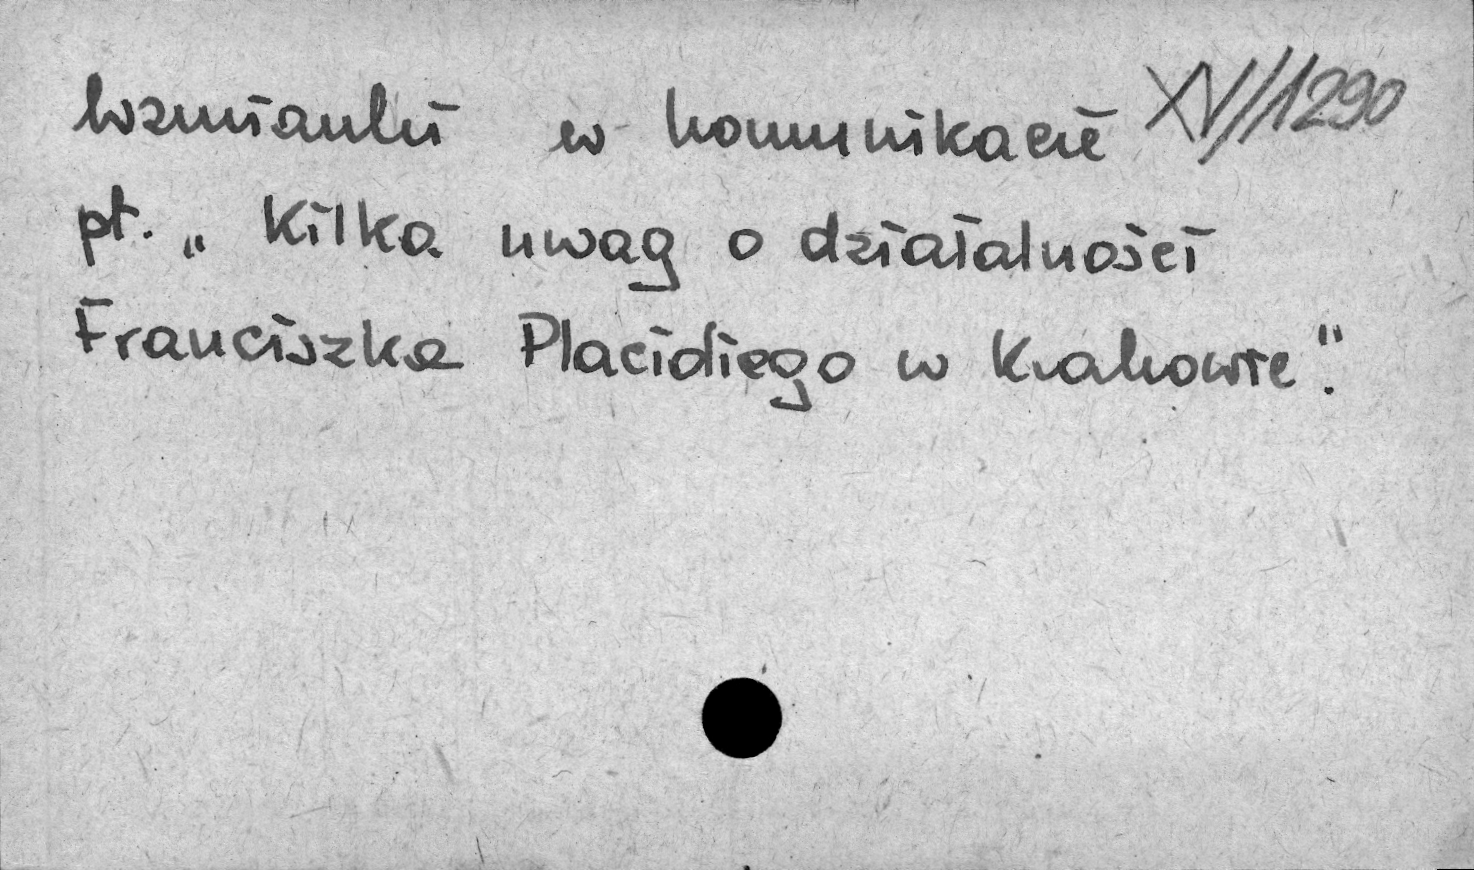 Wzmianki w komunikacie XV//1290
pt. „Kilka uwag o działalności
Franciszka Placidiego w Krakowie".